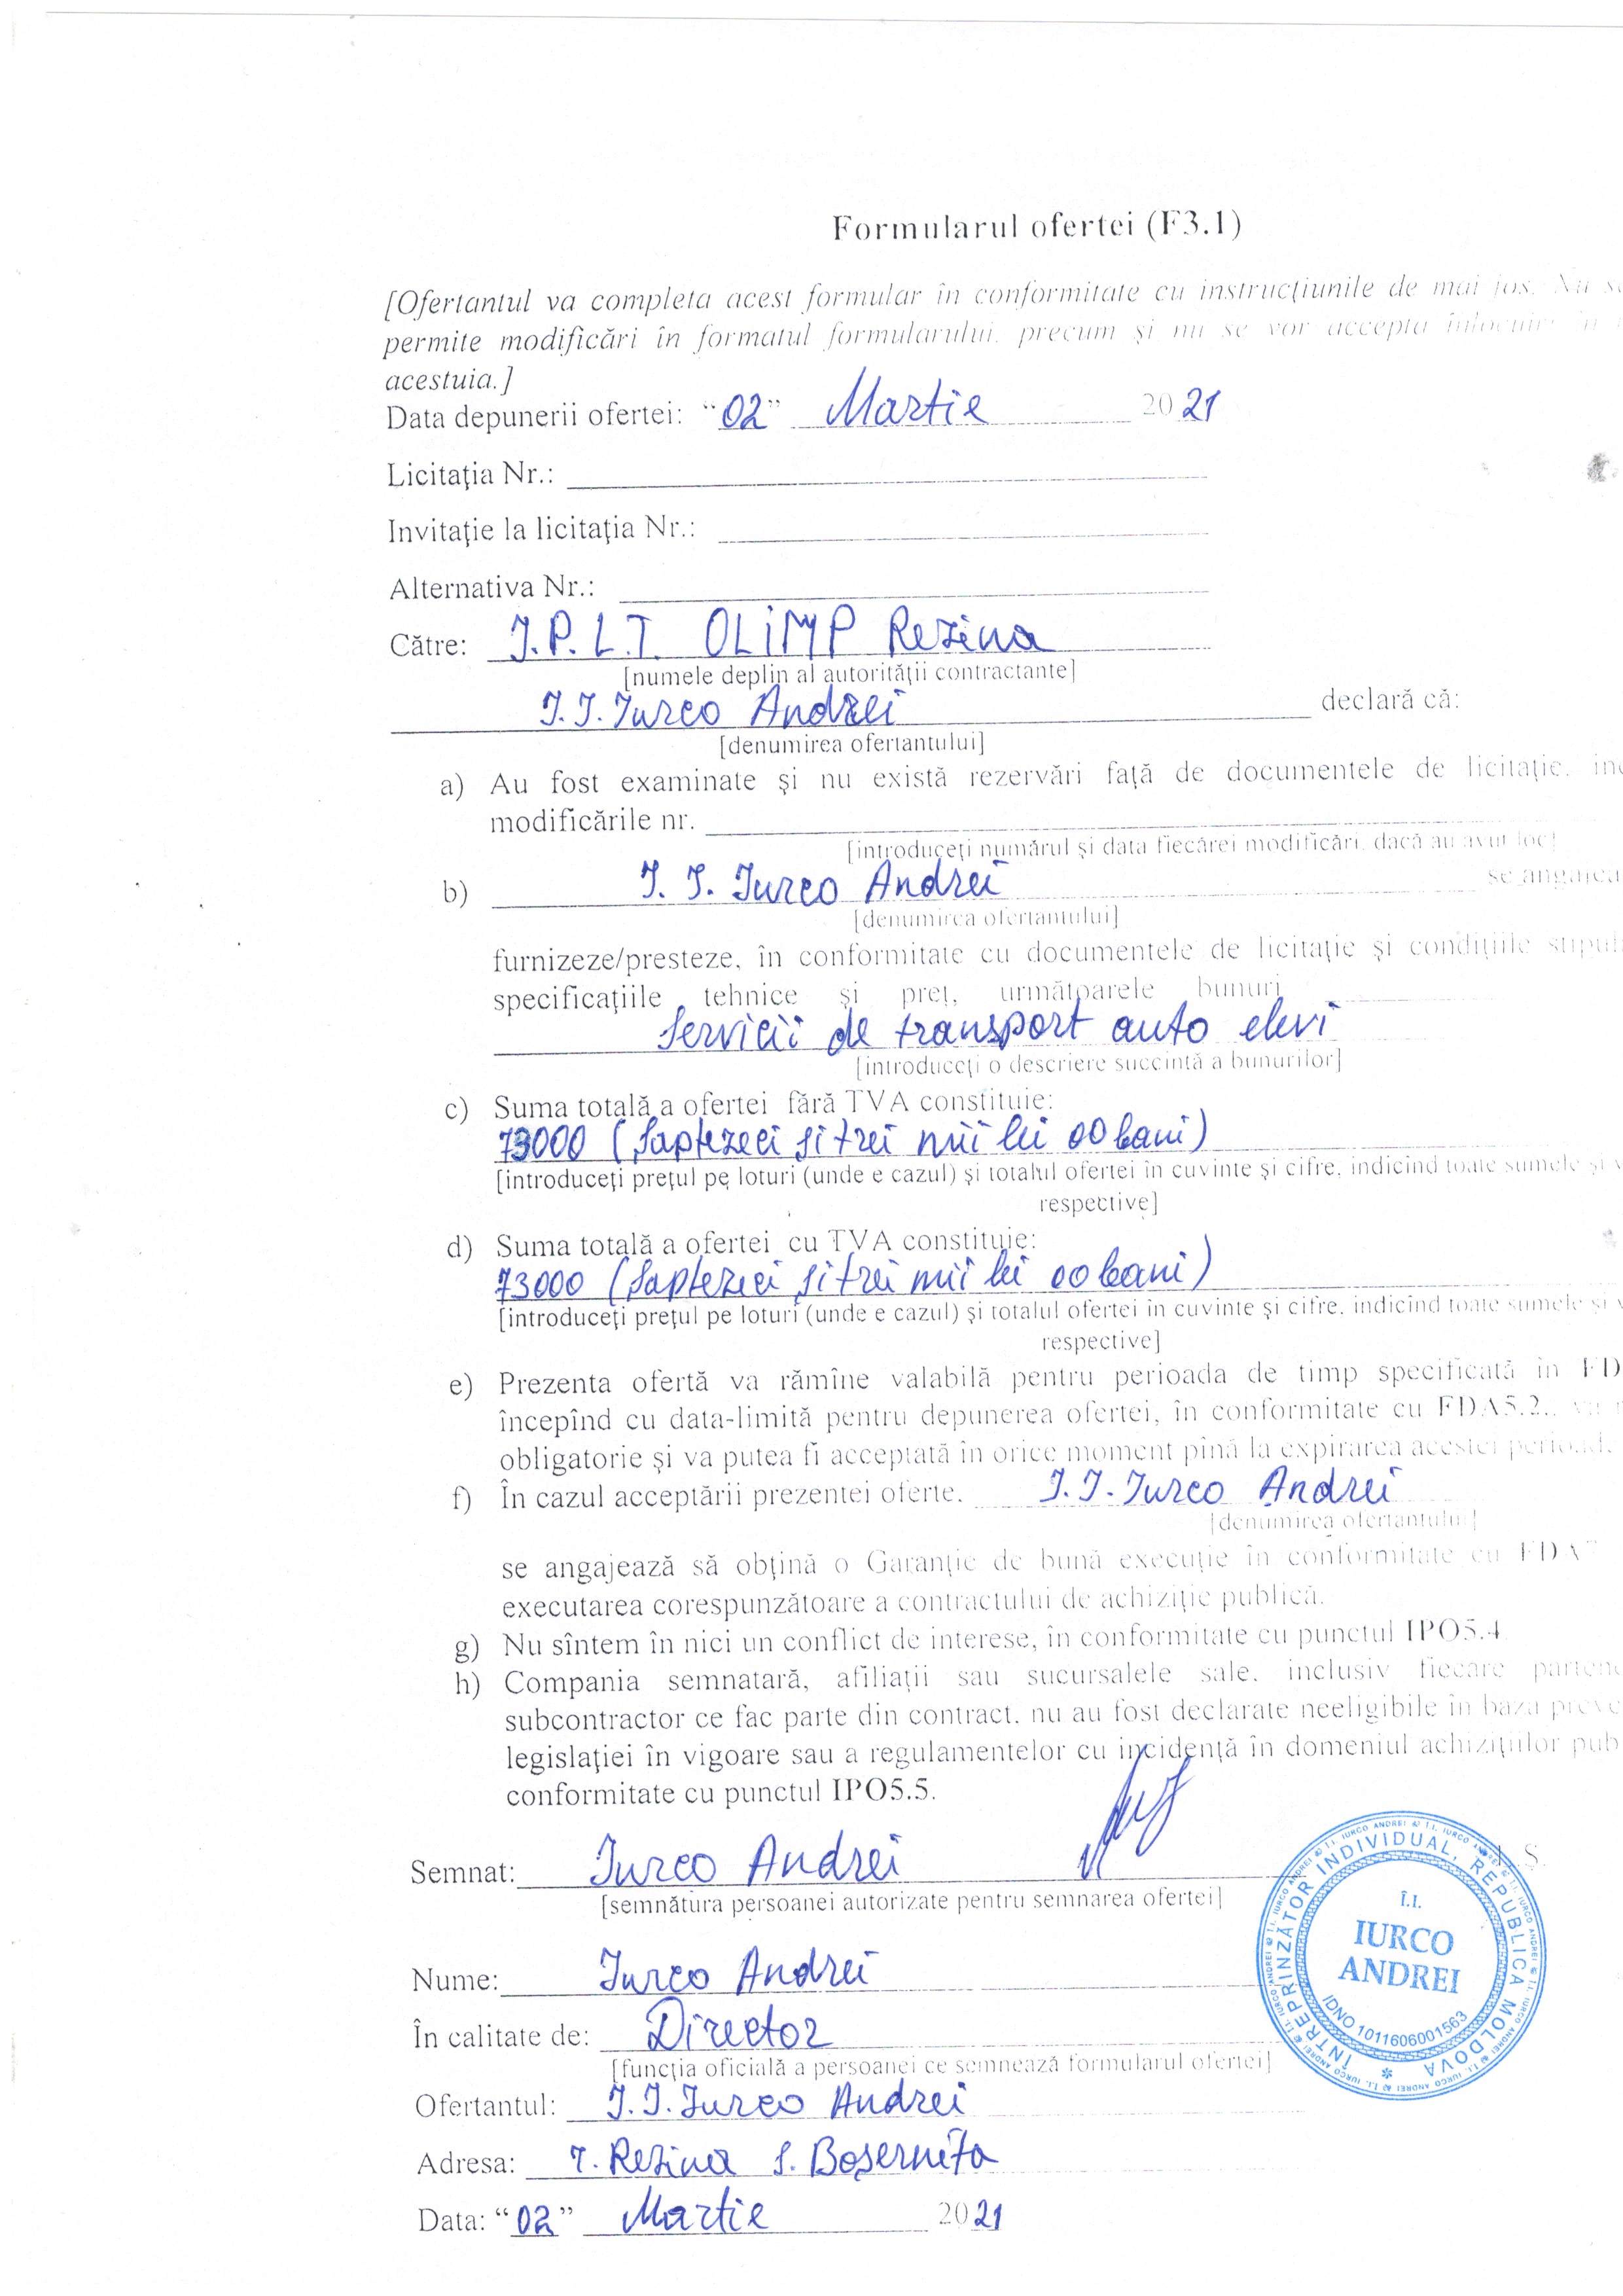 Formularul ofertei (F3.1)
[Ofertantul va completa acest formular în conformitate cu instrucţiunile de mai jos. Nu se
permite modificări în formatul formularului, precum şi nu se vor accepta înlocuiri în
acestuia.]
Data depunerii ofertei: “02” Martie 2021
Licitaţia Nr.:
Invitaţie la licitaţia Nr.:
Alternativa Nr.:
Către: I.P.L.T. OLIMP Rezina
[numele deplin al autorităţii contractante]
I.I. Iurco Andrei declară că:
[denumirea ofertantului]
a) Au fost examinate şi nu există rezervări faţă de documentele de licitaţie, inc
modificările nr.
[introduceţi numărul şi data fiecărei modificări, dacă au avut loc]
b) I. I. Iurco Andrei se angajea
[denumirea ofertantului]
furnizeze/presteze, în conformitate cu documentele de licitaţie şi condiţiile stipul
specificaţiile tehnice şi preţ, următoarele bunuri
Servicii de transport auto elevi
[introduceţi o descriere succintă a bunurilor]
c) Suma totală a ofertei fără TVA constituie:
73000 (Saptezeci si trei mii lei 00 bani)
[introduceţi preţul pe loturi (unde e cazul) şi totalul ofertei în cuvinte şi cifre, indicînd toate sumele şi v
respective]
d) Suma totală a ofertei cu TVA constituie:
73000 (Saptezeci si trei mii lei 00 bani)
[introduceţi preţul pe loturi (unde e cazul) şi totalul ofertei în cuvinte şi cifre, indicînd toate sumele şi v
respective]
e) Prezenta ofertă va rămîne valabilă pentru perioada de timp specificată în FD
începînd cu data-limită pentru depunerea ofertei, în conformitate cu FDA5.2., va r
obligatorie şi va putea fi acceptată în orice moment pînă la expirarea acestei perioad
f) În cazul acceptării prezentei oferte, I.I. Iurco Andrei
[denumirea ofertantului]
se angajează să obţină o Garanţie de bună execuţie în conformitate cu FDA
executarea corespunzătoare a contractului de achiziţie publică.
g) Nu sîntem în nici un conflict de interese, în conformitate cu punctul IPO5.4
h) Compania semnatară, afiliaţii sau sucursalele sale, inclusiv fiecare partene
subcontractor ce fac parte din contract, nu au fost declarate neeligibile în baza preve
legislaţiei în vigoare sau a regulamentelor cu incidenţă în domeniul achiziţiilor pub
conformitate cu punctul IPO5.5.
Semnat: Iurco Andrei
[semnătura persoanei autorizate pentru semnarea ofertei]
Nume: Iurco Andrei
În calitate de: Director
[funcţia oficială a persoanei ce semnează formularul ofertei]
Ofertantul: I.I. Iurco Andrei
Adresa: r. Rezina s. Boșernița
Data: “02” Martie 2021
ÎNTREPRINZĂTOR INDIVIDUAL, REPUBLICA MOLDOVA
Î.I.
IURCO
ANDREI
IDNO 1011606001563